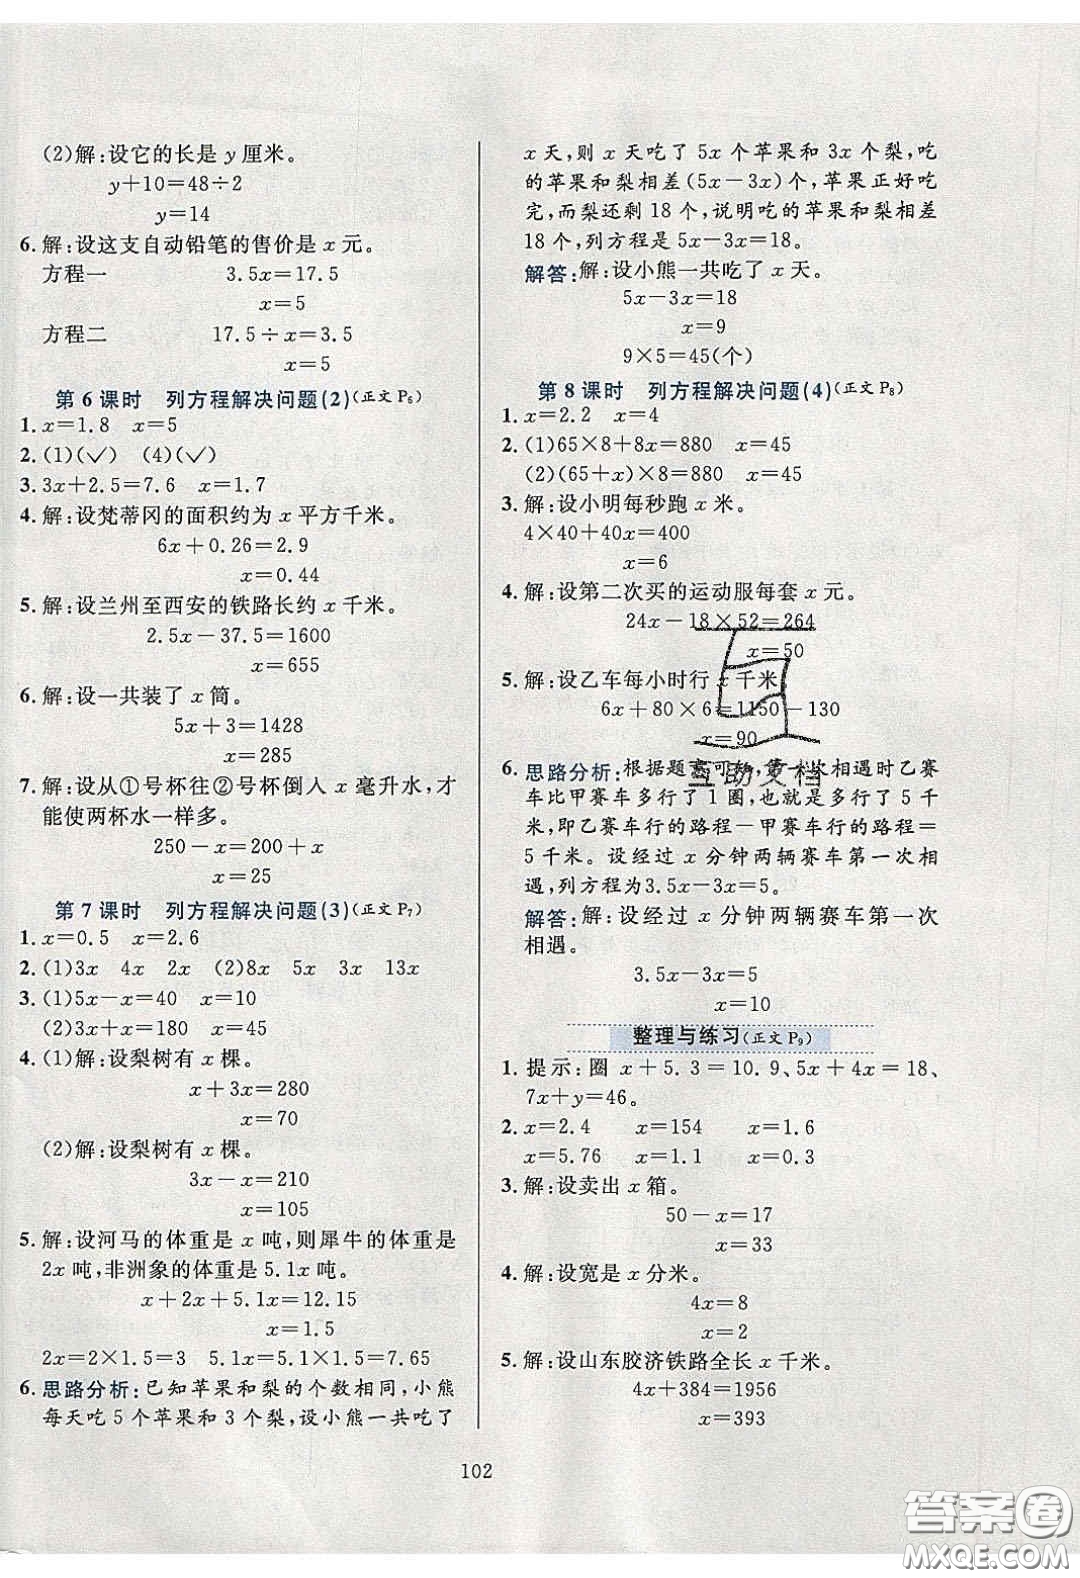 (2)解:设它的长是 y 厘米。
y+10=48÷2
y=14
6. 解:设这支自动铅笔的售价是 x 元。
方程一 3.5x=17.5
x=5
方程二 17.5÷x=3.5
x=5
第 6 课时 列方程解决问题(2)(正文 P6)
1. x=1.8 x=5
2. (1)(✓) (4)(✓)
3. 3x+2.5=7.6 x=1.7
4. 解:设梵蒂冈的面积约为 x 平方千米。
6x+0.26=2.9
x=0.44
5. 解:设兰州至西安的铁路长约 x 千米。
2.5x-37.5=1600
x=655
6. 解:设一共装了 x 筒。
5x+3=1428
x=285
7. 解:设从①号杯往②号杯倒入 x 毫升水,才
能使两杯水一样多。
250-x=200+x
x=25
第 7 课时 列方程解决问题(3)(正文 P7)
1. x=0.5 x=2.6
2. (1)3x 4x 2x (2)8x 5x 3x 13x
3. (1)5x-x=40 x=10
(2)3x+x=180 x=45
4. (1)解:设梨树有 x 棵。
x+3x=280
x=70
(2)解:设梨树有 x 棵。
3x-x=210
x=105
5. 解:设河马的体重是 x 吨,则犀牛的体重是
2x 吨,非洲象的体重是 5.1x 吨。
x+2x+5.1x=12.15
x=1.5
2x=2×1.5=3 5.1x=5.1×1.5=7.65
6. 思路分析:已知苹果和梨的个数相同,小熊
每天吃 5 个苹果和 3 个梨,设小熊一共吃了
x 天,则 x 天吃了 5x 个苹果和 3x 个梨,吃
的苹果和梨相差(5x-3x)个,苹果正好吃
完,而梨还剩 18 个,说明吃的苹果和梨相差
18 个,列方程是 5x-3x=18。
解答:解:设小熊一共吃了 x 天。
5x-3x=18
x=9
9×5=45(个)
第 8 课时 列方程解决问题(4)(正文 P8)
1. x=2.2 x=4
2. (1)65×8+8x=880 x=45
(2)(65+x)×8=880 x=45
3. 解:设小明每秒跑 x 米。
4×40+40x=400
x=6
4. 解:设第二次买的运动服每套 x 元。
24x-18×52=264
x=50
5. 解:设乙车每小时行 x 千米。
6x+80×6=1150-130
x=90
6. 思路分析:根据题意可知,第一次相遇时乙赛
车比甲赛车多行了 1 圈,也就是多行了 5 千
米,即乙赛车行的路程-甲赛车行的路程=
5 千米。设经过 x 分钟两辆赛车第一次相
遇,列方程为3.5x-3x=5。
解答:解:设经过 x 分钟两辆赛车第一次
相遇。
3.5x-3x=5
x=10
整理与练习(正文 P9)
1. 提示:圈 x+5.3=10.9、5x+4x=18、
7x+y=46。
2. x=2.4 x=154 x=1.6
x=5.76 x=1.1 x=0.3
3. 解:设卖出 x 箱。
50-x=17
x=33
4. 解:设宽是 x 分米。
4x=8
x=2
5. 解:设山东胶济铁路全长 x 千米。
4x+384=1956
x=393
102
互助文档
答案卷
MXQE.COM